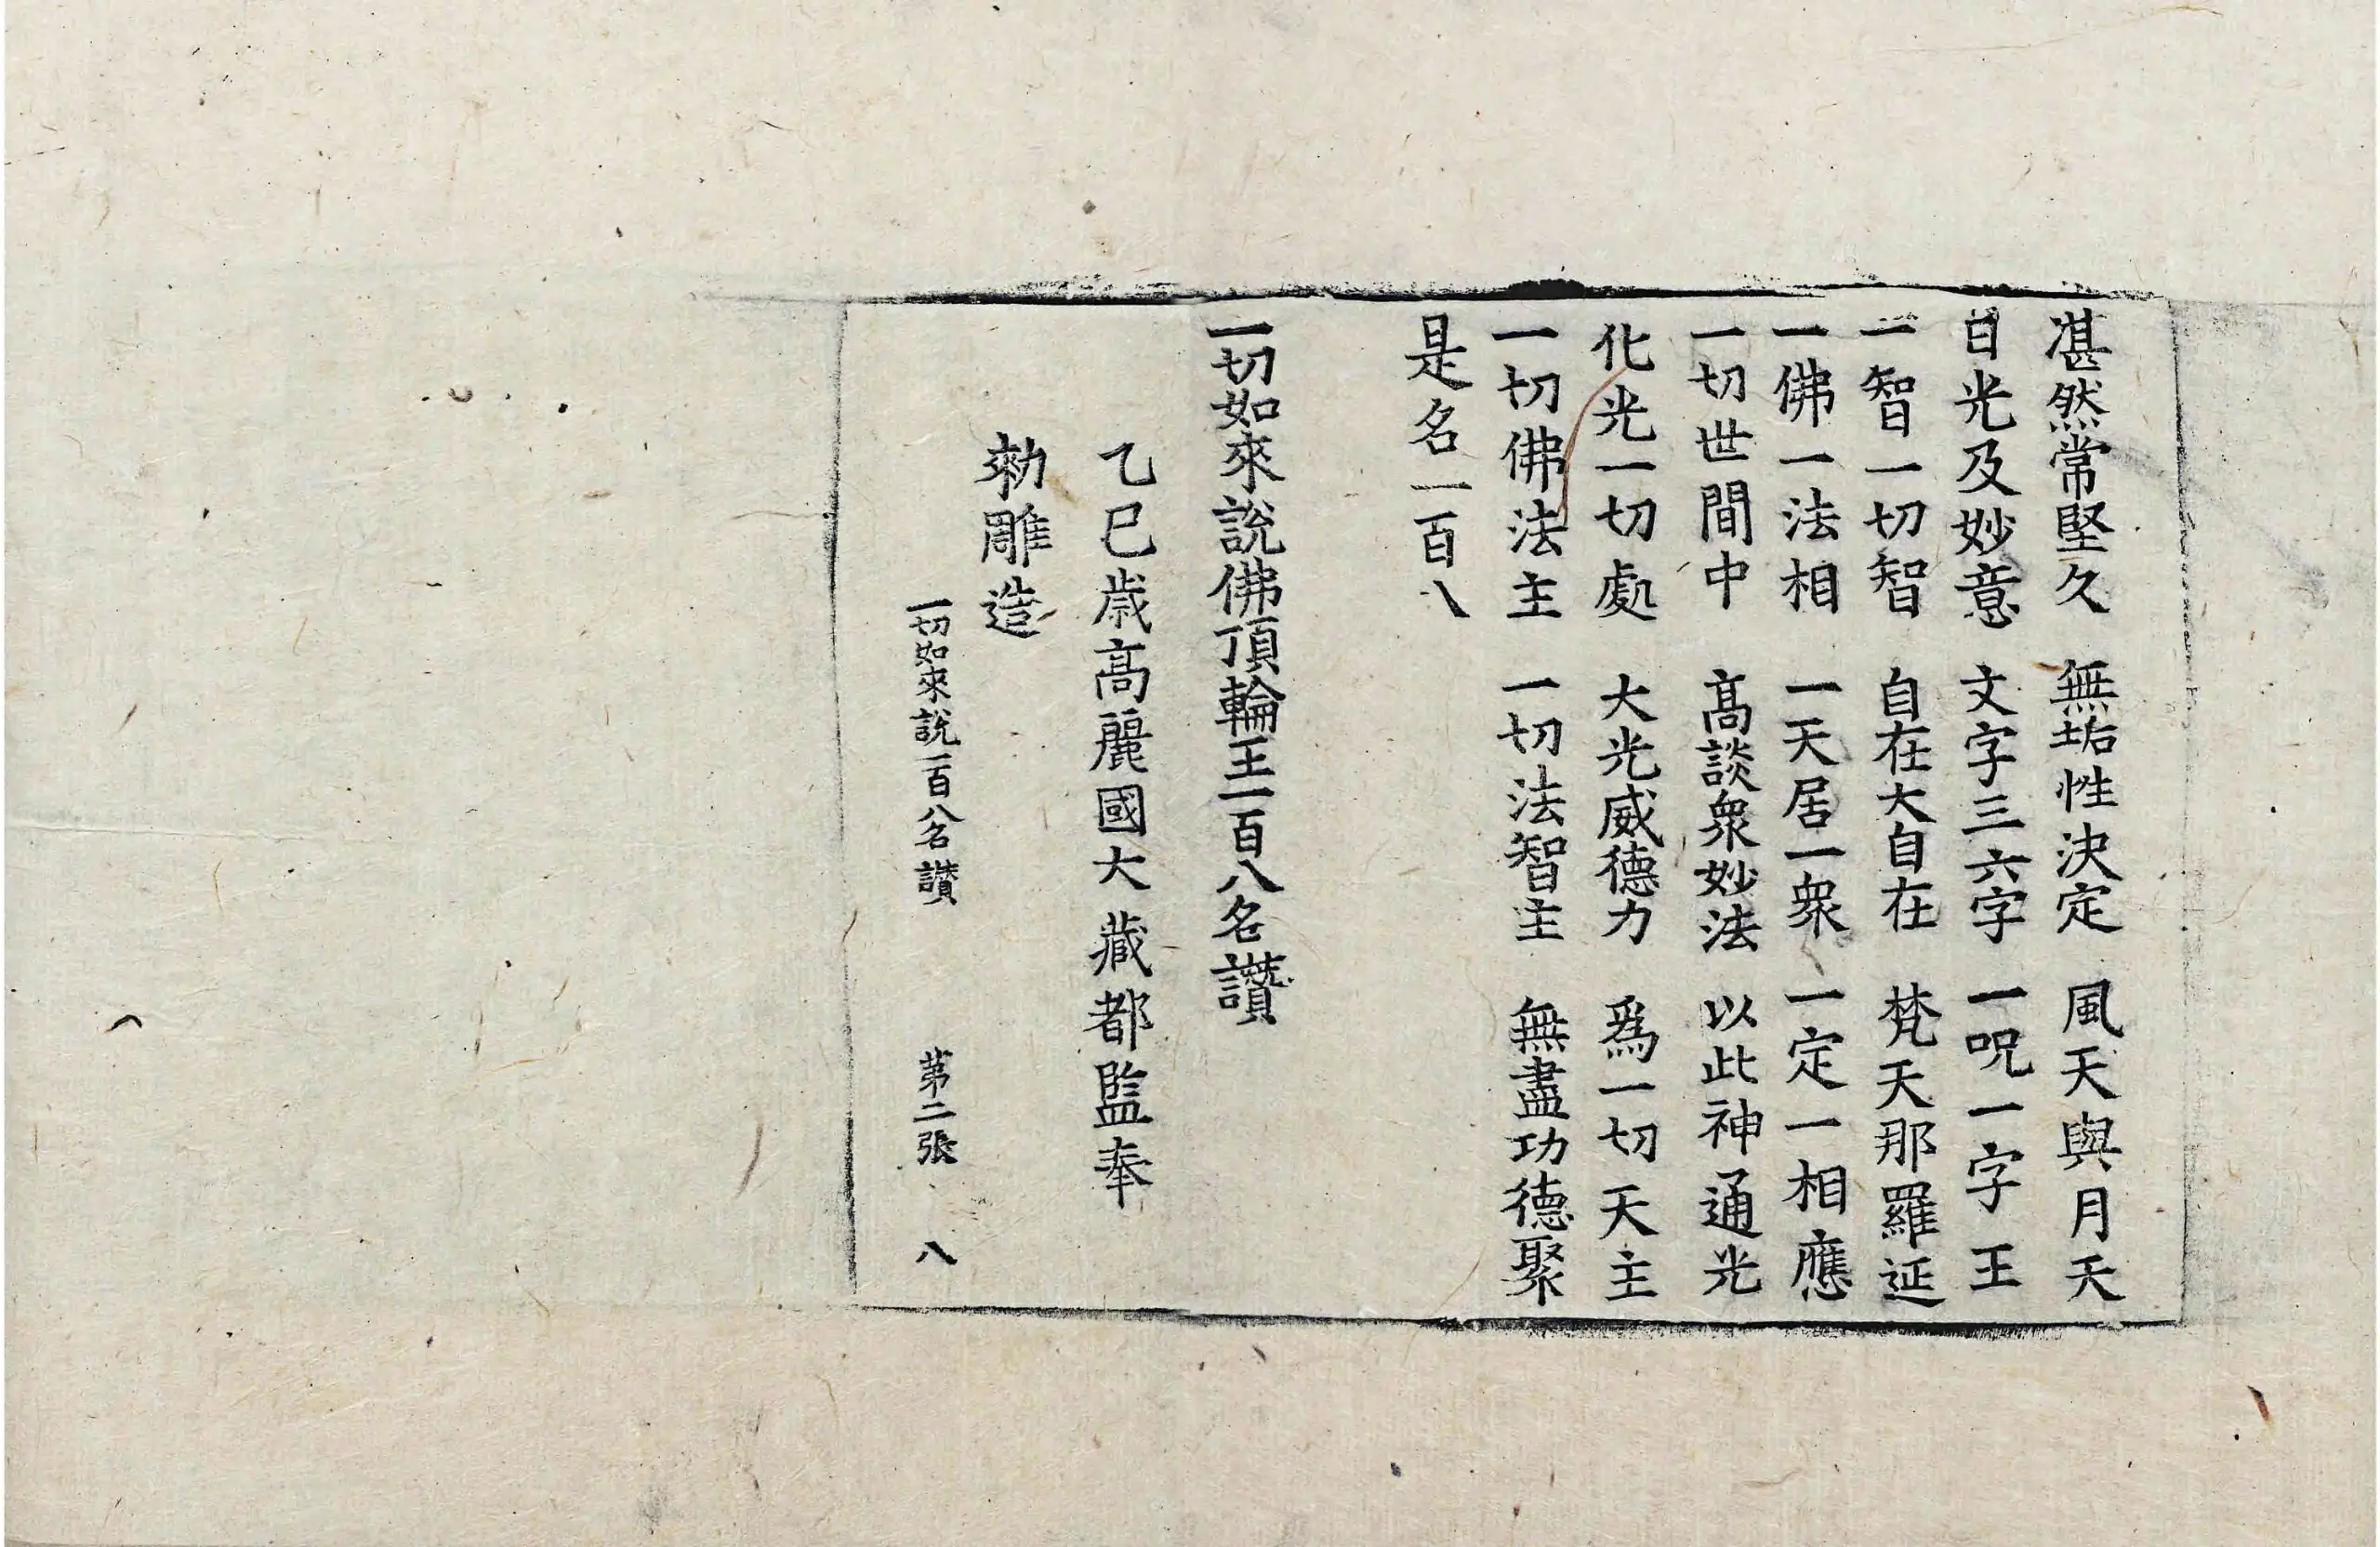 湛然常堅久 無垢性決定 風天與月天
日光及妙意 文字三六字 一呪一字王
一智一切智 自在大自在 梵天那羅延
一佛一法相 一天居一衆 一定一相應
一切世間中 高談衆妙法 以此神通光
化光一切處 大光威德力 爲一切天主
一切佛法主 一切法智主 無盡功德聚
是名一百八
一切如來說佛頂輪王一百八名讚
乙巳歲高麗國大藏都監奉
勑雕造
一切如來說一百八名讚 第二張 八